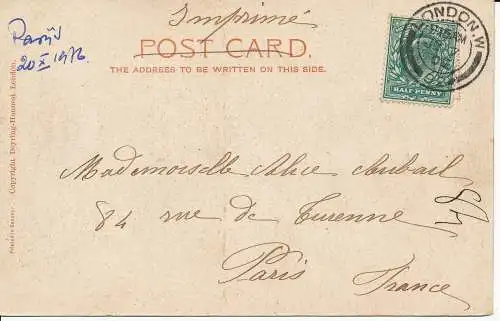 Imprimé
Paris
20 X 1976.
POST CARD.
THE ADDRESS TO BE WRITTEN ON THIS SIDE.
LONDON.W
HALF PENNY
Mademoiselle Alice Aubail
84 rue de Turenne
Paris
France
84
Copyright Deyring-Hansen, London.